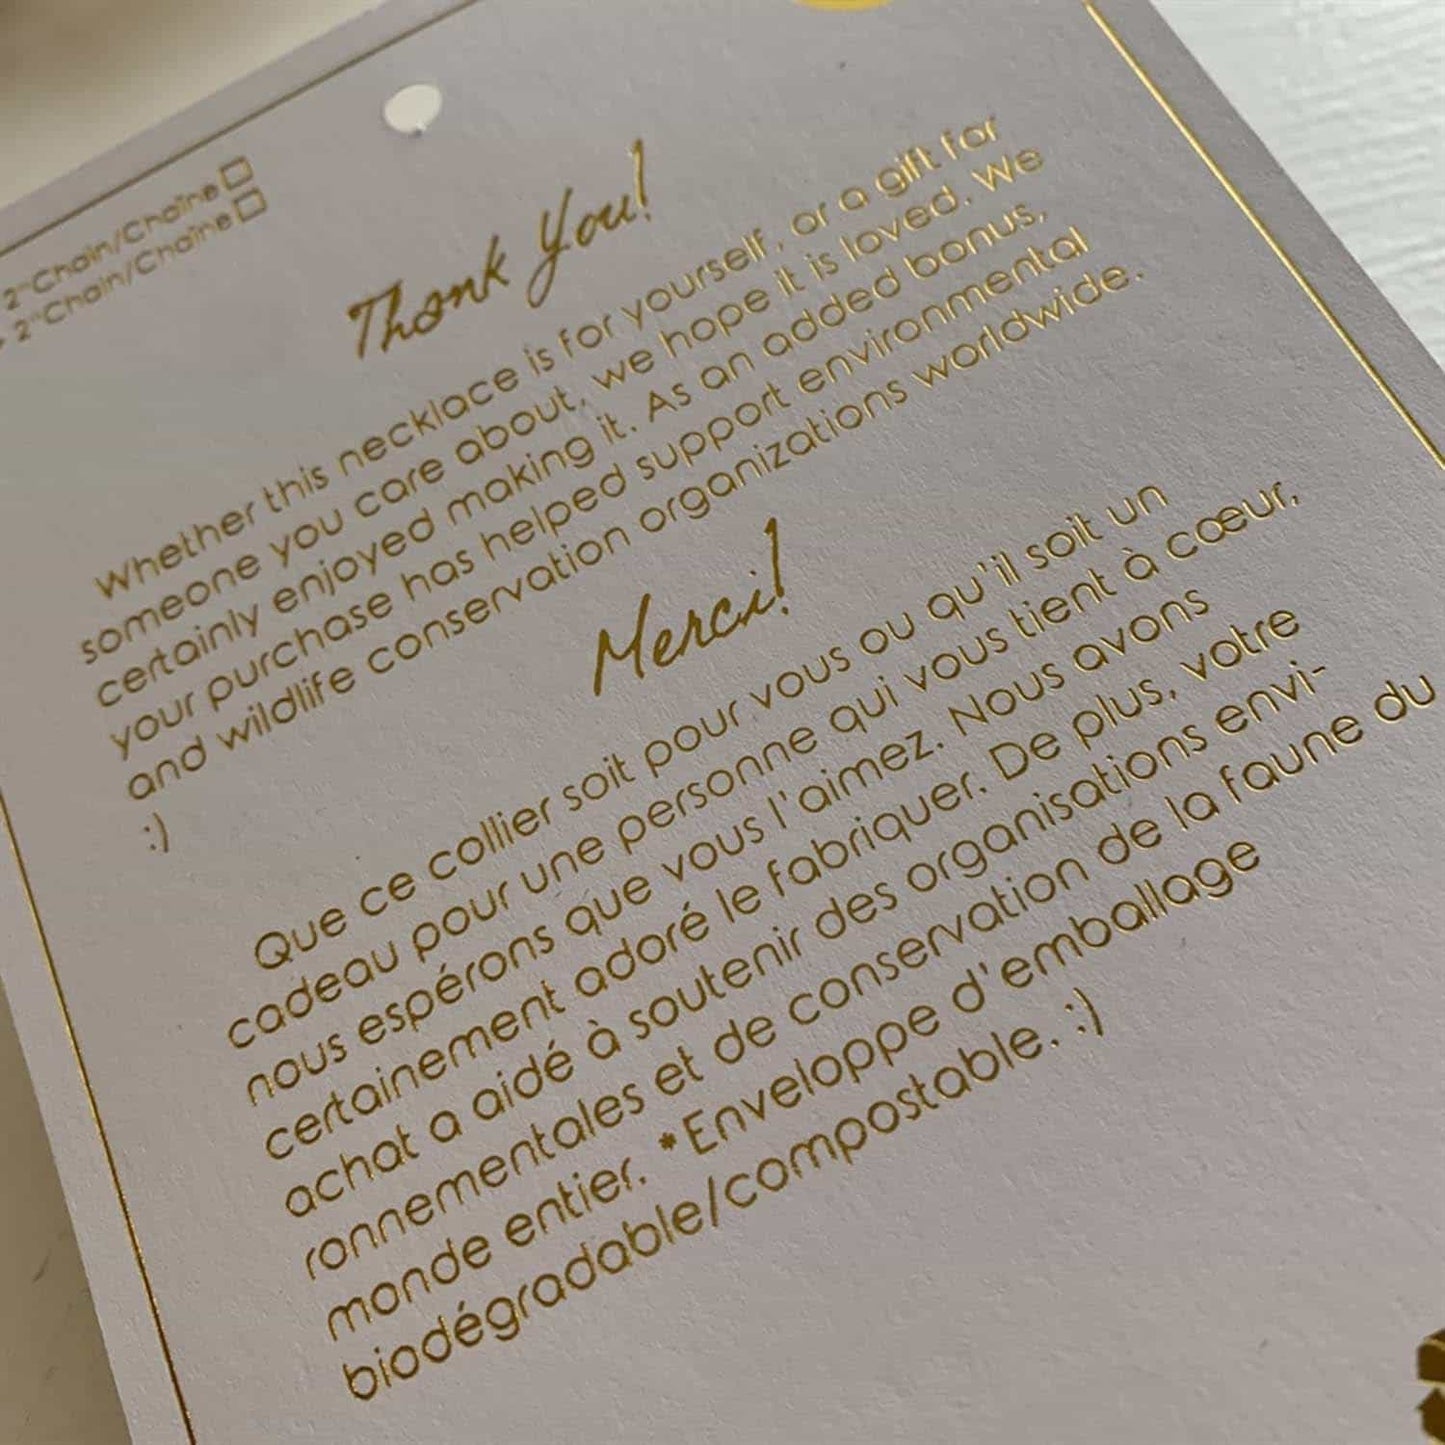 2"Chain/Chaîne
2"Chain/Chaîne
Thank You!
Whether this necklace is for yourself, or a gift for
someone you care about, we hope it is loved. We
certainly enjoyed making it. As an added bonus,
your purchase has helped support environmental
and wildlife conservation organizations worldwide.
:)
Merci!
Que ce collier soit pour vous ou qu'il soit un
cadeau pour une personne qui vous tient à cœur,
nous espérons que vous l'aimez. Nous avons
certainement adoré le fabriquer. De plus, votre
achat a aidé à soutenir des organisations envi-
ronnementales et de conservation de la faune du
monde entier. *Enveloppe d'emballage
biodégradable/compostable. :)